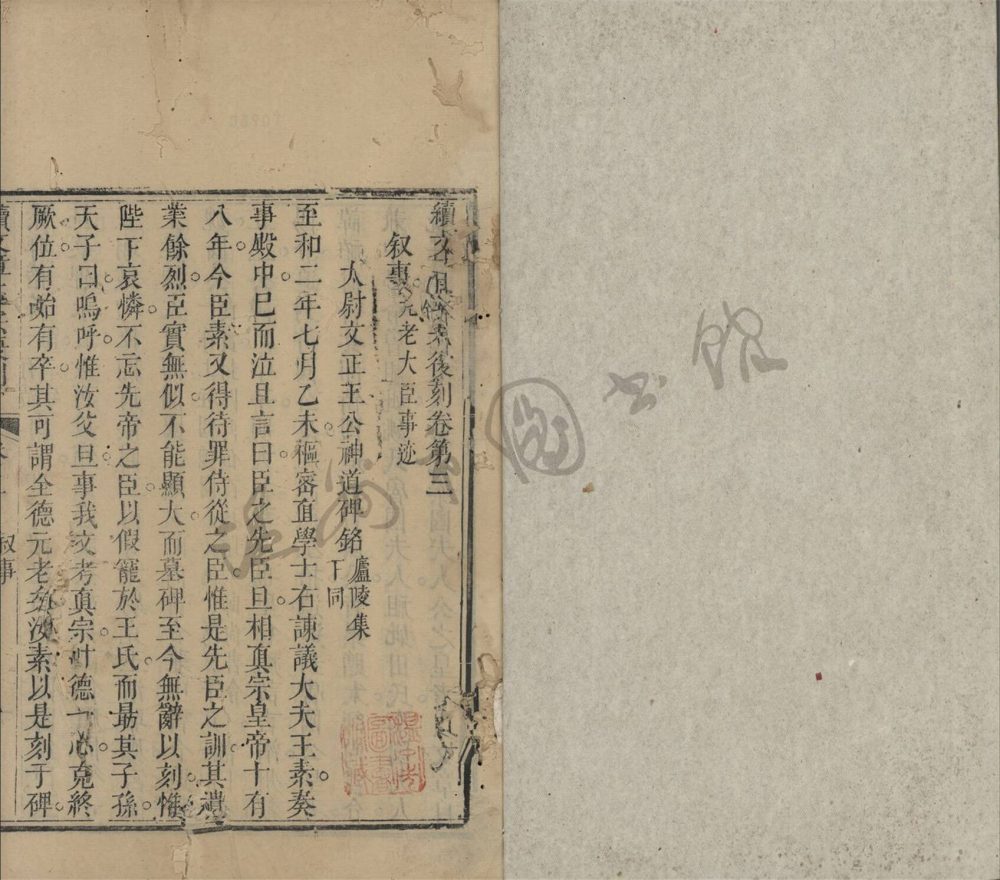 續文章正宗後刻卷第三
叙事元老大臣事迹
太尉文正王公神道碑銘廬陵集下同
至和二年七月乙未樞密直學士右諫議大夫王素奏
事殿中已而泣且言曰臣之先臣旦相真宗皇帝十有
八年今臣素又得待罪侍從之臣惟是先臣之訓其遺
業餘烈臣實無似不能顯大而墓碑至今無辭以刻惟
陛下哀憐不忘先帝之臣以假寵於王氏而勗其子孫
天子曰嗚呼惟汝父旦事我文考真宗叶德一心克終
厥位有始有卒其可謂全德元老矣汝素以是刻于碑
叙事
溫州
圖書館